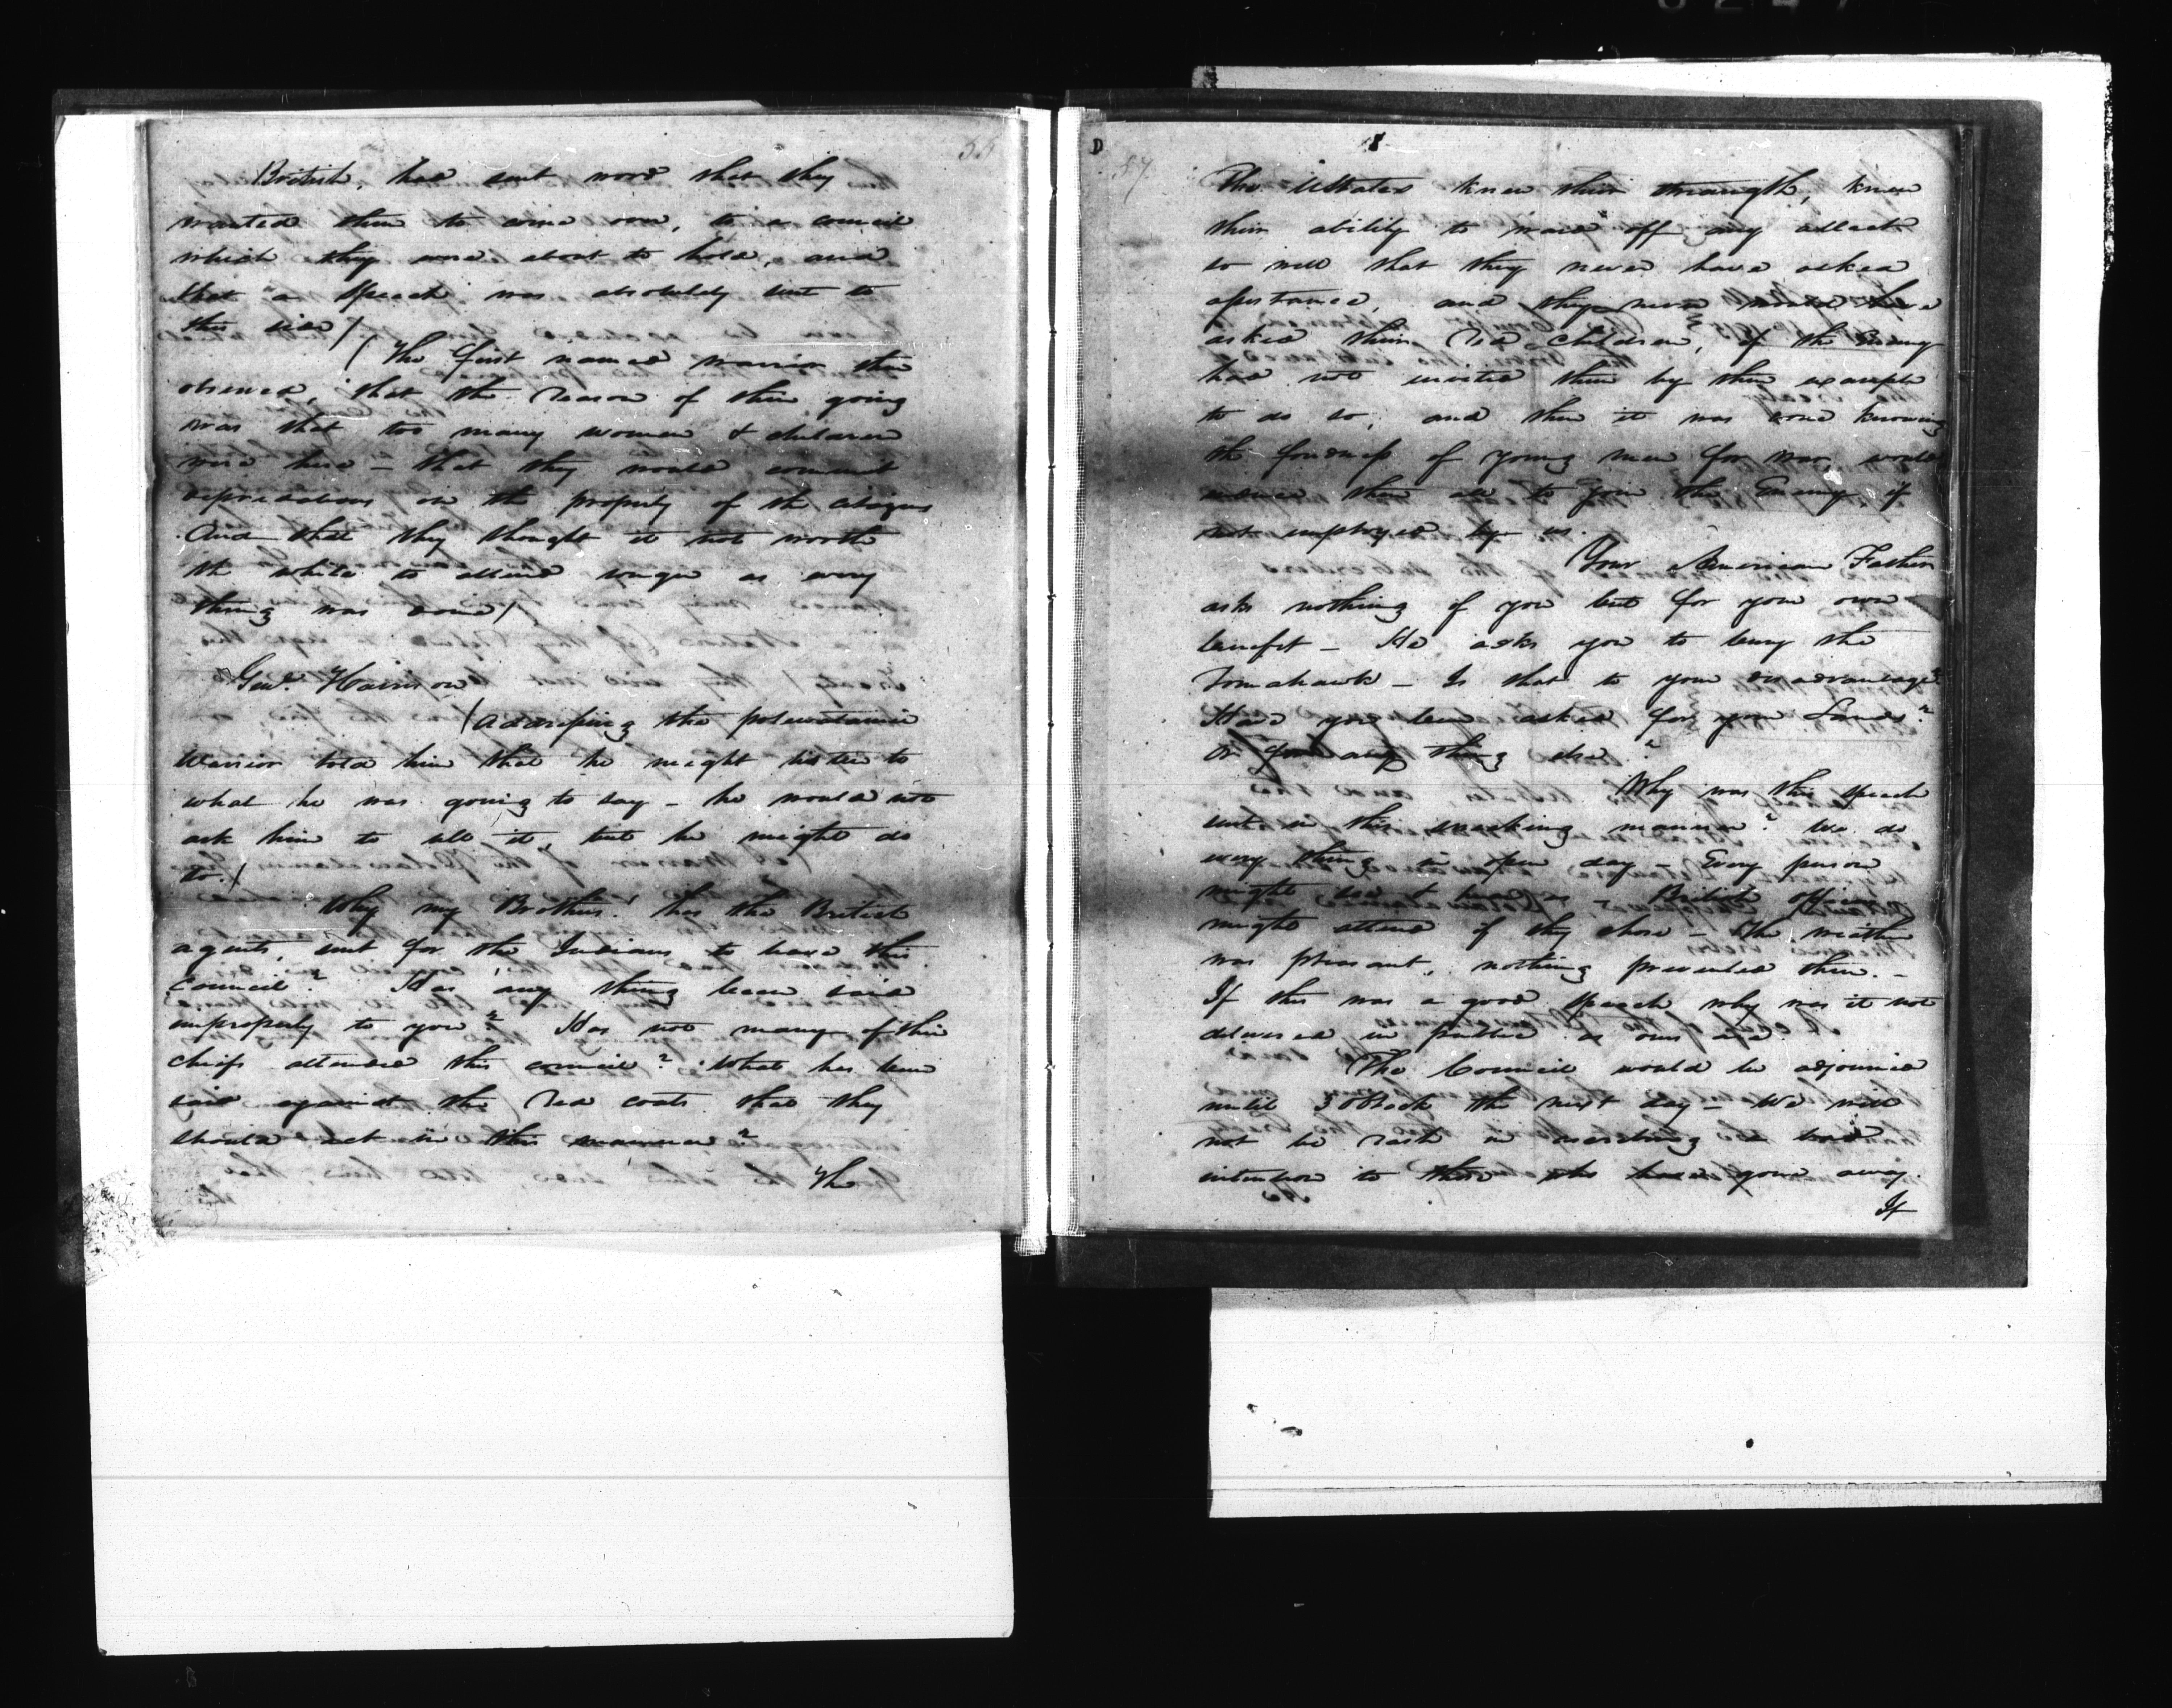 56
British, had sent word that they
wanted them to come over, to a council
which they were about to hold, and
that a speech was absolutely sent to
this side)
(The first named warrior then
observed, that the reason of them going
was that too many women & children
were here – that they would commit
depredations on the property of the citizens
And that they thought it not worth
the while to attend longer as every
thing was done)
Genl. Harrison
(Addressing the potawatamie
Warrior told him that he might listen to
what he was going to say – he would not
ask him to tell it, but he might do
so.)
Why my Brothers! has the British
agents, sent for the Indians to leave this
Council? Has any thing been said
improperly to you? Has not many of their
chiefs attended this council? What has been
said against the Red coats that they
should act in this manner?
The
8
57
The UStates knew their strength, knew
their ability to ward off any attack
so well that they never have asked
assistance, and they never would have
asked their Red children, if the Enemy
had not invited them by their example
to do so, and then it was done knowing
the fondness of young men for war, would
induce them all to join the Enemy if
not employed by us.
Your American Father
asks nothing of you but for your own
benefit – He asks you to bury the
Tomahawk – Is that to your disadvantage?
Have you been asked for your Lands?
or for any thing else?
Why was this speech
sent in this sneaking manner? We do
every thing in open day – Every person
might see & hear us – British officers
might attend if they chose – The weather
was pleasant, nothing prevented them. –
If this was a good speech why was it not
delivered in public as ours are?
The Council would be adjourned
until 3 oClock the next day – We will
not be rash in ascribing a bad
intention to those who have gone away.
If